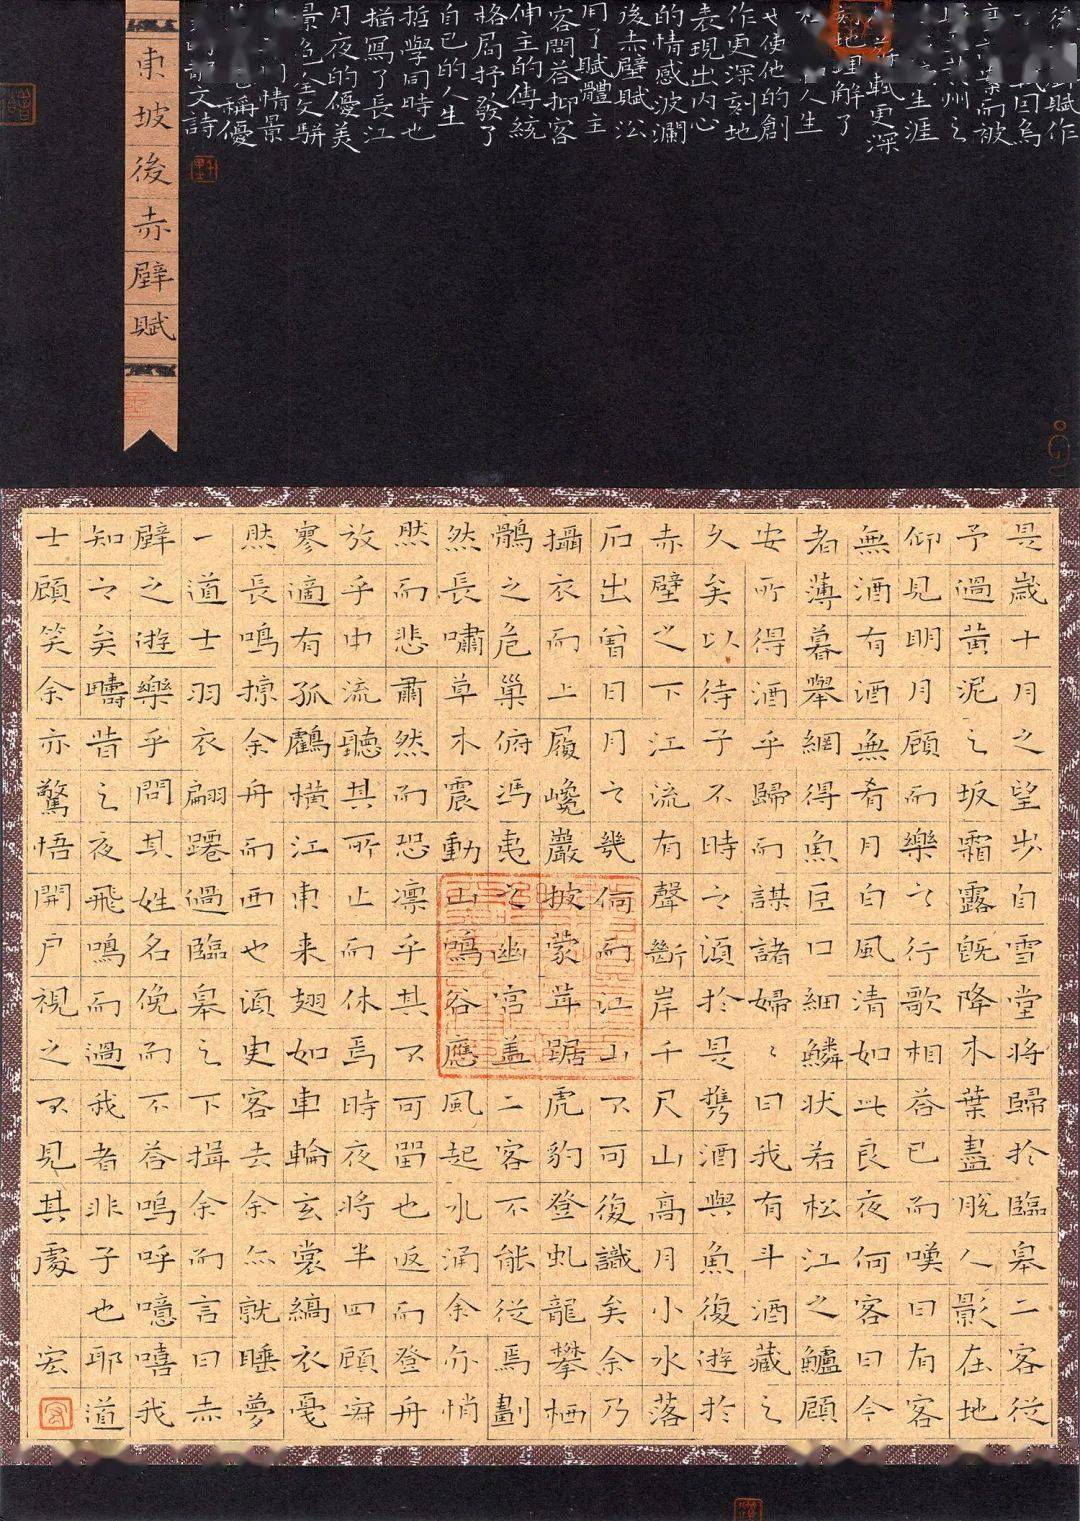 賦作
因烏
案而被
州之
生涯
軾更深
刻地理解了
人生
也使他的創
作更深刻地
表現出內心
的情感波瀾
後赤壁賦沿
用了賦體主
客問答抑客
伸主的傳統
格局抒發了
自己的人生
哲學同時也
描寫了長江
月夜的優美
景色全文駢
情景
稱優
文詩
東坡後赤壁賦
是歲十月之望步自雪堂將歸於臨皋二客從
予過黃泥之坂霜露既降木葉盡脫人影在地
仰見明月顧而樂之行歌相答已而嘆曰有客
無酒有酒無肴月白風清如此良夜何客曰今
者薄暮舉網得魚巨口細鱗狀若松江之鱸顧
安所得酒乎歸而謀諸婦〻曰我有斗酒藏之
久矣以待子不時之須於是攜酒與魚復遊於
赤壁之下江流有聲斷岸千尺山高月小水落
石出曾日月之幾何而江山不可復識矣余乃
攝衣而上履巉巖披蒙茸踞虎豹登虬龍攀栖
鶻之危巢俯馮夷之幽宮蓋二客不能從焉劃
然長嘯草木震動山鳴谷應風起水涌余亦悄
然而悲肅然而恐凜乎其不可留也返而登舟
放乎中流聽其所止而休焉時夜將半四顧寂
寥適有孤鶴橫江東来翅如車輪玄裳縞衣戛
然長鳴掠余舟而西也須臾客去余亦就睡夢
一道士羽衣翩躚過臨皋之下揖余而言曰赤
壁之遊樂乎問其姓名俛而不答嗚呼噫嘻我
知之矣疇昔之夜飛鳴而過我者非子也耶道
士顧笑余亦驚悟開戶視之不見其處 宏